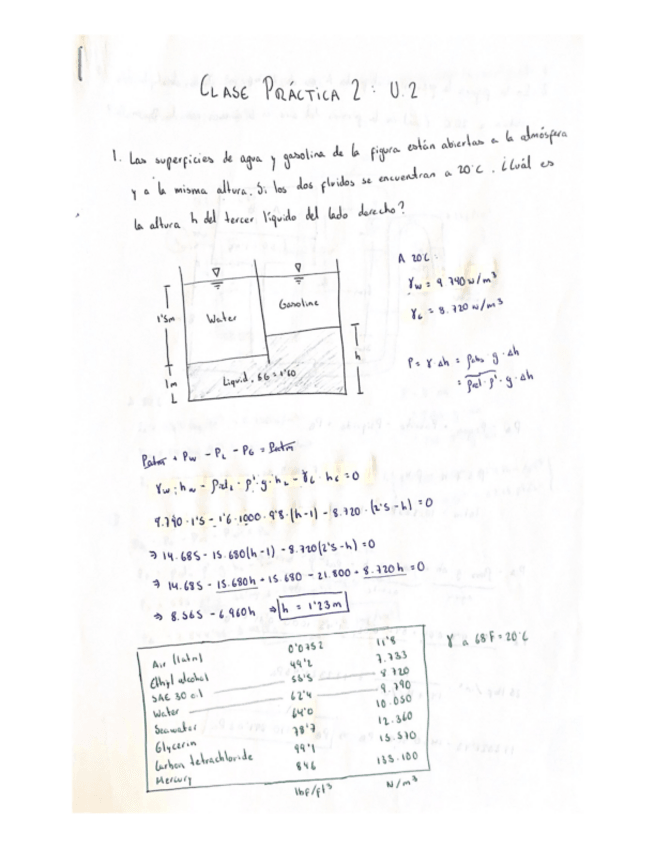 CLASE PRÁCTICA 2: U.2
1. Las superficies de agua y gasolina de la figura están abiertas a la atmósfera
y a la misma altura. Si los dos fluidos se encuentran a 20°C. ¿Cuál es
la altura h del tercer líquido del lado derecho?
A 20°C:
γw = 9.790 N/m³
γG = 8.720 N/m³
1'5m
Water
Gasoline
1m
Liquid, SG = 1'60
h
P = γ Δh = ρabs · g · Δh
= ρrel · ρ' · g · Δh
Patm + Pw - PL - PG = Patm
γw · hw - ρrel · ρ' · g · hL - γG · hG = 0
9.790 · 1'5 - 1'6 · 1000 · 9'8 · (h-1) - 8.720 · (2'5 - h) = 0
⇒ 14.685 - 15.680(h-1) - 8.720(2'5-h) = 0
⇒ 14.685 - 15.680h + 15.680 - 21.800 + 8.720h = 0
⇒ 8.565 - 6.960h ⇒ h = 1'23m
γ a 68°F = 20°C
Air (1atm) 0'0752 11'8
Ethyl alcohol 49'2 7.733
SAE 30 oil 55'5 8.720
Water 62'4 9.790
Seawater 64'0 10.050
Glycerin 78'7 12.360
Carbon tetrachloride 99'1 15.570
Mercury 846 133.100
lbf/ft³ N/m³